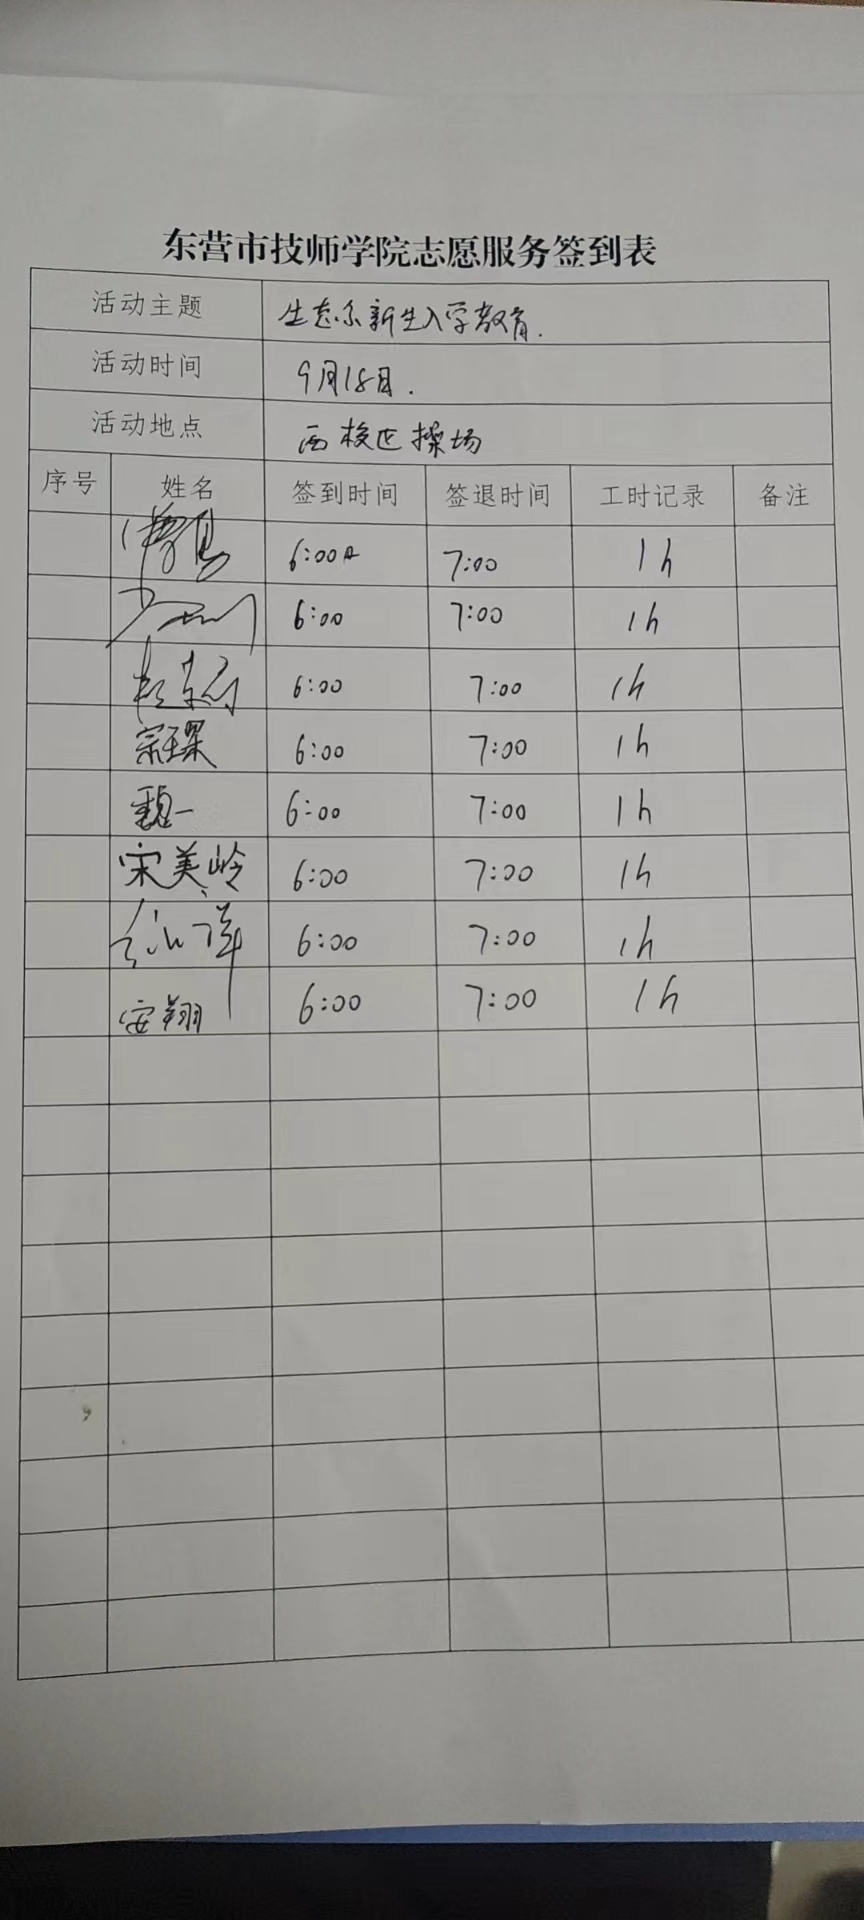 东营市技师学院志愿服务签到表
活动主题 生态系新生入学教育.
活动时间 9月18日.
活动地点 西校区操场
序号 姓名 签到时间 签退时间 工时记录 备注
6:00 7:00 1h
6:00 7:00 1h
6:00 7:00 1h
宗王果 6:00 7:00 1h
魏一 6:00 7:00 1h
宋美岭 6:00 7:00 1h
6:00 7:00 1h
安翔 6:00 7:00 1h